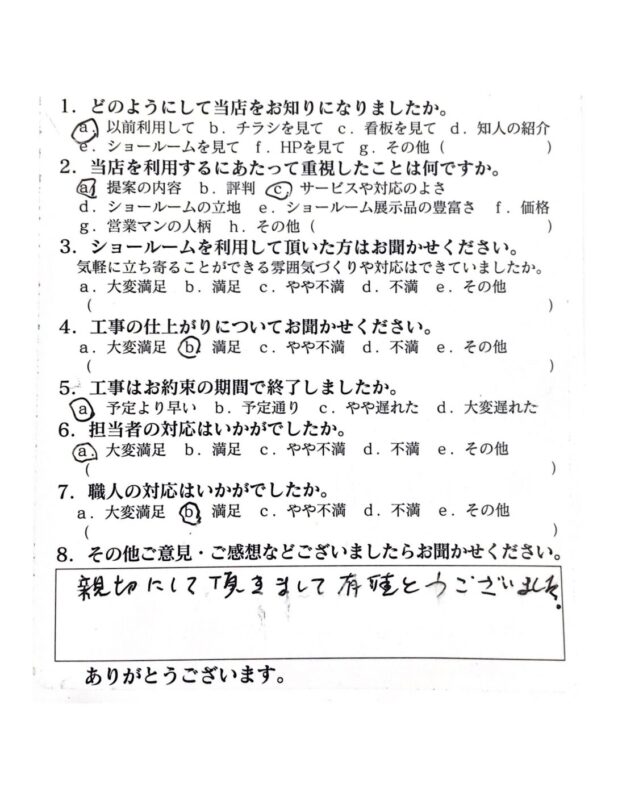 1．どのようにして当店をお知りになりましたか。
a．以前利用して b．チラシを見て c．看板を見て d．知人の紹介
e．ショールームを見て f．HPを見て g．その他（ ）
2．当店を利用するにあたって重視したことは何ですか。
a．提案の内容 b．評判 c．サービスや対応のよさ
d．ショールームの立地 e．ショールーム展示品の豊富さ f．価格
g．営業マンの人柄 h．その他（ ）
3．ショールームを利用して頂いた方はお聞かせください。
気軽に立ち寄ることができる雰囲気づくりや対応はできていましたか。
a．大変満足 b．満足 c．やや不満 d．不満 e．その他
（ ）
4．工事の仕上がりについてお聞かせください。
a．大変満足 b．満足 c．やや不満 d．不満 e．その他
（ ）
5．工事はお約束の期間で終了しましたか。
a．予定より早い b．予定通り c．やや遅れた d．大変遅れた
6．担当者の対応はいかがでしたか。
a．大変満足 b．満足 c．やや不満 d．不満 e．その他
（ ）
7．職人の対応はいかがでしたか。
a．大変満足 b．満足 c．やや不満 d．不満 e．その他
（ ）
8．その他ご意見・ご感想などございましたらお聞かせください。
親切にして頂きまして有難とうございました。
ありがとうございます。